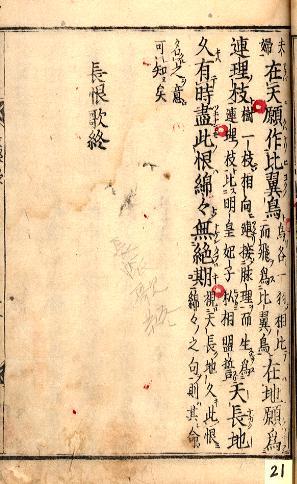 夫婦 在天願作比翼鳥 鳥各一翅相比而飛為比翼鳥 在地願為
連理枝 樹一枝相向連接脉理而生為連理枝比明皇妃子私相盟誓 天長地
久有時盡此恨綿々無絶期 天長地久此恨綿々之句則其命
名之意可知矣
長恨歌終
長恨歌
21